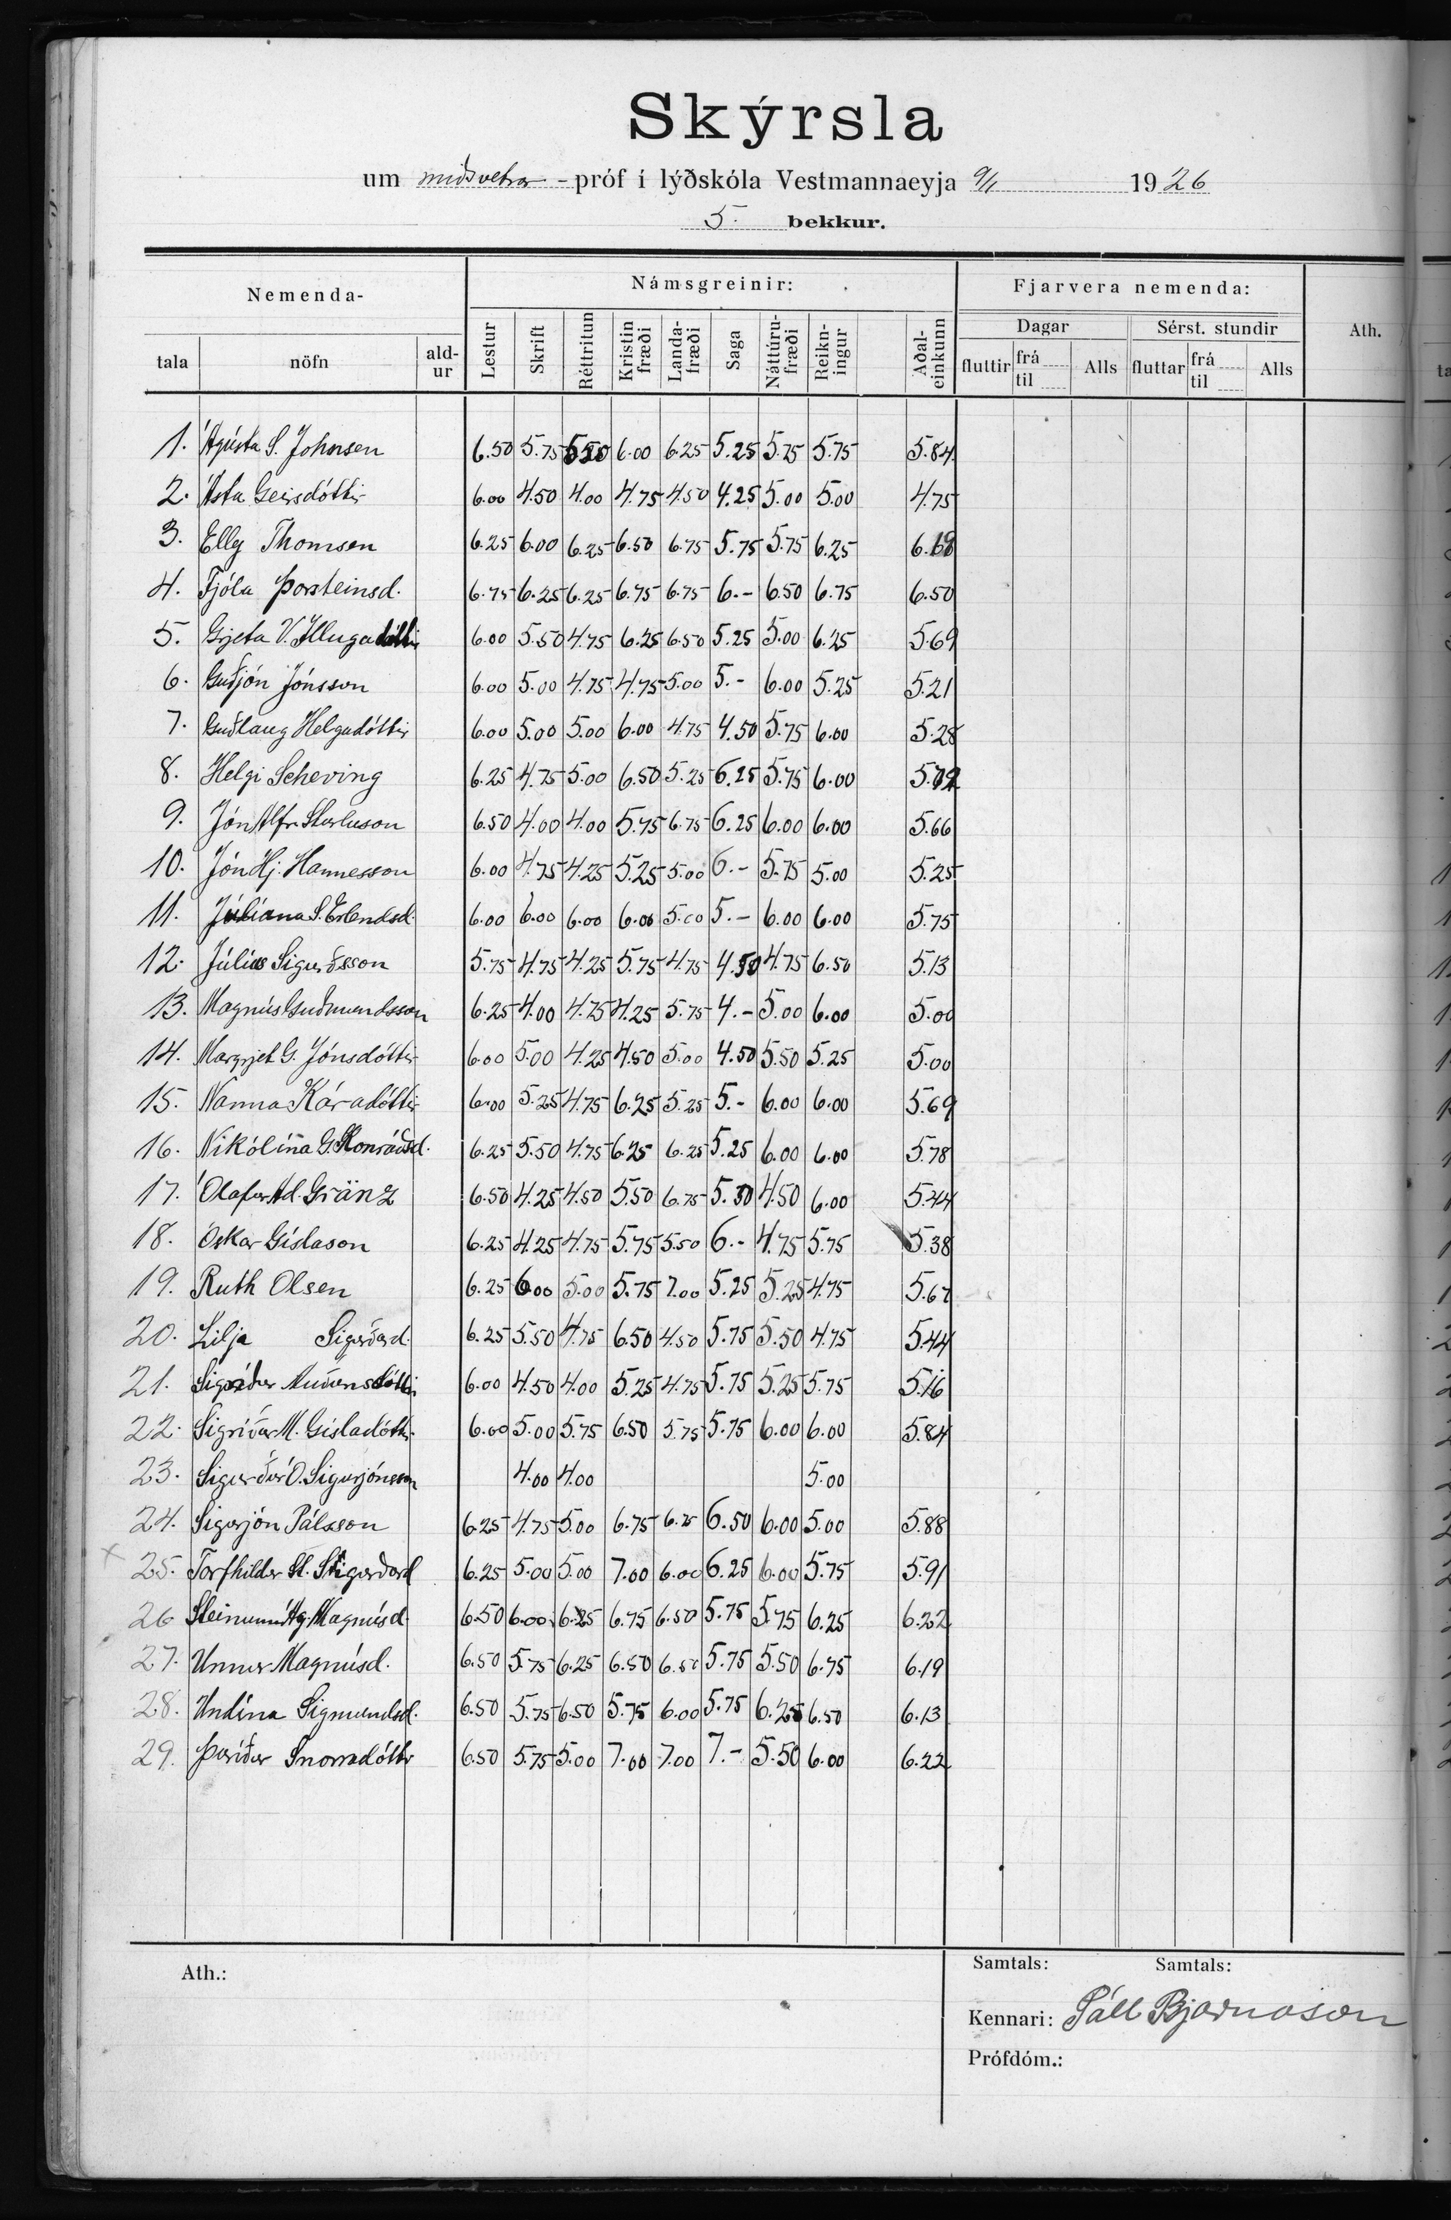 Skýrsla
um miðsvetrar - próf í lýðskóla Vestmannaeyja 9/1 1926
5. bekkur.
Nemenda-
Námsgreinir:
Fjarvera nemenda:
Ath.
tala nöfn ald-ur Lestur Skrift Réttritun Kristinfræði Landa-fræði Saga Náttúru-fræði Reikn-ingur Aðal-einkunn
Dagar Sérst. stundir
fluttir frá til Alls fluttar frá til Alls
1. Ágústa S. Johnsen 6.50 5.75 5.50 6.00 6.25 5.25 5.75 5.75 5.84
2. Ásta Geirsdóttir 6.00 4.50 4.00 4.75 4.50 4.25 5.00 5.00 4.75
3. Elly Thomsen 6.25 6.00 6.25 6.50 6.75 5.75 5.75 6.25 6.19
4. Fjóla Þorsteinsd. 6.75 6.25 6.25 6.75 6.75 6.- 6.50 6.75 6.50
5. Grjeta V. Illugadóttir 6.00 5.50 4.75 6.25 6.50 5.25 5.00 6.25 5.69
6. Guðjón Jónsson 6.00 5.00 4.75 4.75 5.00 5.- 6.00 5.25 5.21
7. Guðlaug Helgadóttir 6.00 5.00 5.00 6.00 4.75 4.50 5.75 6.00 5.28
8. Helgi Scheving 6.25 4.75 5.00 6.50 5.25 6.25 5.75 6.00 5.72
9. Jón Alfr. Sturluson 6.50 4.00 4.00 5.75 6.75 6.25 6.00 6.00 5.66
10. Jón Hj. Hannesson 6.00 4.75 4.25 5.25 5.00 6.- 5.75 5.00 5.25
11. Júliana S. Erlendsd. 6.00 6.00 6.00 6.00 5.00 5.- 6.00 6.00 5.75
12. Július Sigurðsson 5.75 4.75 4.25 5.75 4.75 4.50 4.75 6.50 5.13
13. Magnús Guðmundsson 6.25 4.00 4.75 4.25 5.75 4.- 5.00 6.00 5.00
14. Margrjet G. Jónsdóttir 6.00 5.00 4.25 4.50 5.00 4.50 5.50 5.25 5.00
15. Nanna Káradóttir 6.00 5.25 4.75 6.25 5.25 5.- 6.00 6.00 5.69
16. Nikólína G. Konráðsd. 6.25 5.50 4.75 6.25 6.25 5.25 6.00 6.00 5.78
17. Ólafur Ad. Gränz 6.50 4.25 4.50 5.50 6.75 5.50 4.50 6.00 5.44
18. Óskar Gíslason 6.25 4.25 4.75 5.75 5.50 6.- 4.75 5.75 5.38
19. Ruth Olsen 6.25 6.00 5.00 5.75 7.00 5.25 5.25 4.75 5.67
20. Lilja Sigurðard. 6.25 5.50 4.75 6.50 4.50 5.75 5.50 4.75 5.44
21. Sigríður Auðunsdóttir 6.00 4.50 4.00 5.25 4.75 5.75 5.25 5.75 5.16
22. Sigríður M. Gísladóttir 6.00 5.00 5.75 6.50 5.75 5.75 6.00 6.00 5.84
23. Sigurður Ó. Sigurjónsson 4.00 4.00 5.00
24. Sigurjón Pálsson 6.25 4.75 5.00 6.75 6.25 6.50 6.00 5.00 5.88
x 25. Torfhildur St. Sigurðard 6.25 5.00 5.00 7.00 6.00 6.25 6.00 5.75 5.91
26 Steinunn Ág. Magnúsd. 6.50 6.00 6.25 6.75 6.50 5.75 5.75 6.25 6.22
27. Unnur Magnúsd. 6.50 5.75 6.25 6.50 6.50 5.75 5.50 6.75 6.19
28. Undína Sigmundsd. 6.50 5.75 6.50 5.75 6.00 5.75 6.25 6.50 6.13
29. Þuríður Snorradóttir 6.50 5.75 5.00 7.00 7.00 7.- 5.50 6.00 6.22
Ath.:
Samtals: Samtals:
Kennari: Páll Bjarnason
Prófdóm.: